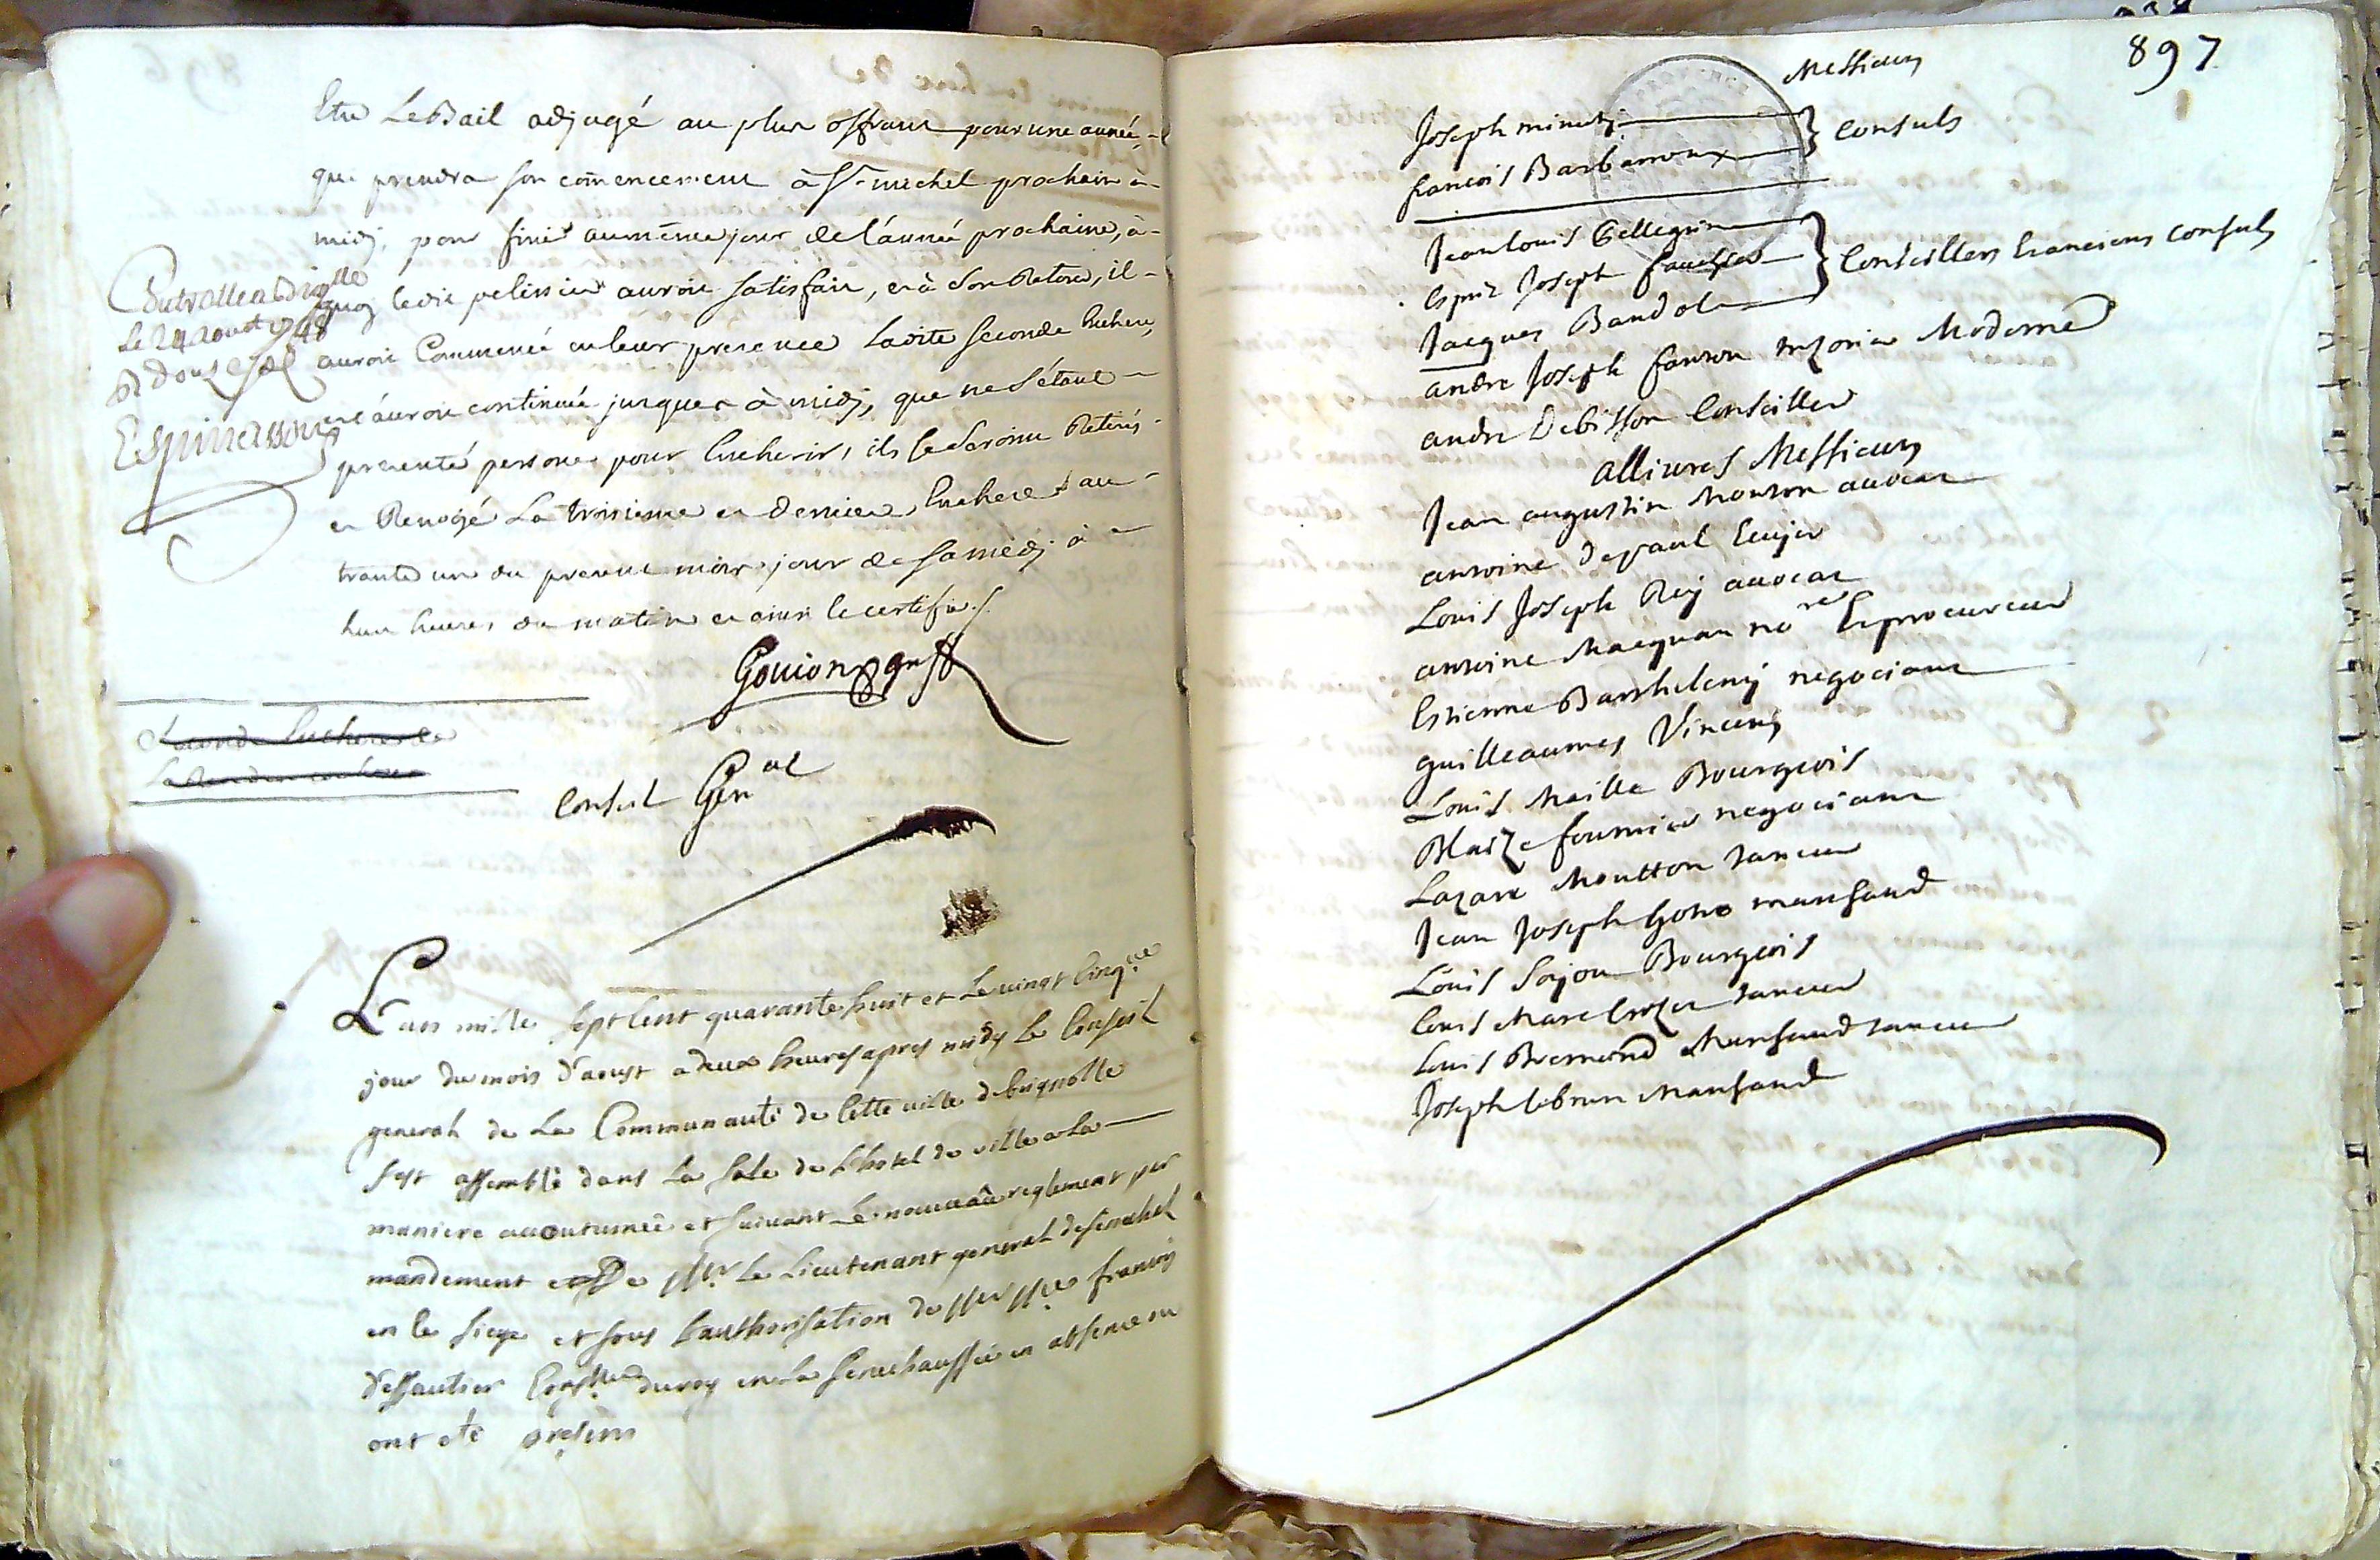 Etre Le Bail adjugé au plus offrant pour une année,
qui prendra son comencement à St michel prochain a
midj, pour finir au même jour de l'année prochaine, à
quoj ledit pelissier auroit satisfait, et à son Retour, il
auroit Commencé en leur presence Ladite seconde Enchere,
et l'auroit continuée jusques à midj, que ne s'étant
presenté persone pour Encherir, ils se seroint Retirés
et Renvoyé La troisieme et derniere Enchere au
trante un du present mois jour de samedj à
huit heures du matin et ainsi le certifie
Gouion greff
Controlle a Brig^lle
Le 24 aoust 1748
R douze sols
Espinasson
Seconde Enchere de
Conseil Gen^al
L'an mille sept Cent quarante huit et Le vingt Cinq^me
jour du mois d'aoust a deux heures apres midy Le Conseil
general de La Communauté de Cette ville de brignolle
s'est assemblé dans La sale de L'hotel de ville a La
maniere accoutumée et suivant Le nouveau reglement par
mandement de Mr Le Lieutenant general de senechal
en le siege et sous L'authorisation de francois
dessautier du roy en La senechaussée en absence
ont eté presens
897
Messieurs
Joseph minuty
francois Barbarroux } Consuls
Jean Louis Pellegrin
Esprit Joseph
Jacques Bandol } Conseillers Et anciens Consuls
andre Joseph fanton trezorier Moderne
andre Debisson Conseiller
allivres Messieurs
Jean augustin Mouton avocat
antoine depaul Ecuyer
Louis Joseph Rey avocat
antoine Macquan no^re Et procureur
Estienne Barthelemy negociant
guilleaumes Vincens
Louis Maille Bourgeois
Blaize fournier negociant
Lazare Moutton taneur
Jean Joseph marchand
Louis Sajou Bourgeois
Louis Marc taneur
Louis Bremond Marchand taneur
Joseph Lebrun Marchand